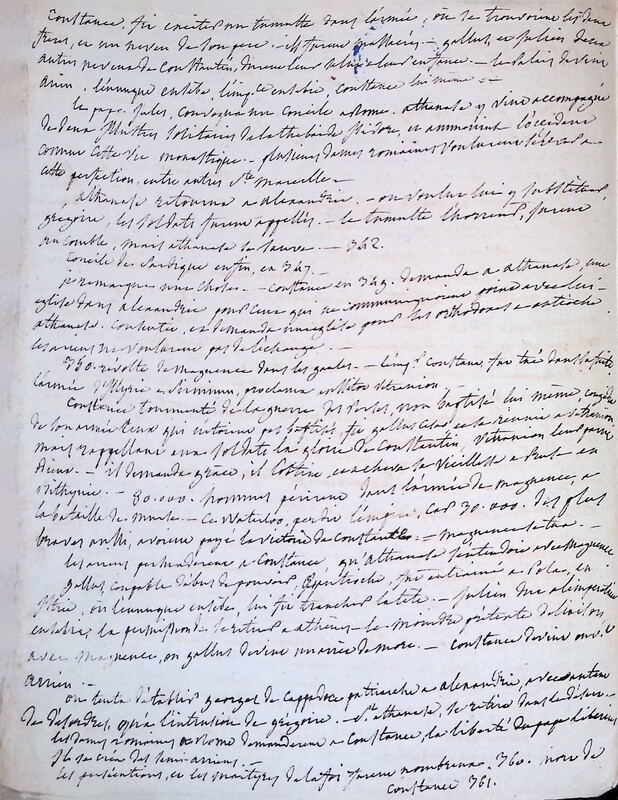 Constance, fit exciter un tumulte dans l'armée, où se trouvoient les deux
frères, et un neveu de son père. - ils furent massacrés. - gallus, et julien deux
autres neveux de Constantin, durent leur salut à leur enfance. - le palais devint
arien. l'eunuque eusèbe, l'impce eusebie, Constance lui même =
le pape jules, convoqua un Concile a Rome. athanase y vint accompagné
de deux illustres Solitaires de la thebaïde Isidore, et ammonius l'occident
connut cette vie monastique. - plusieurs dames romaines voulurent s'élever a
cette perfection, entre autres Ste marcelle -
athanase retourna a alexandrie. - on voulut lui y substituer
gregoire, les soldats furent appellés. - le tumulte l'horreur, furent
au comble, mais athanase se sauva. - 342.
Concile de Sardique enfin, en 347.
je remarque une chose. - Constance en 349. demanda a athanase, une
eglise dans alexandrie pour ceux qui ne communiquoient point avec lui -
athanase consentit, et demanda une eglise pour les orthodoxes a antioche
les ariens ne voulurent pas de l'échange. -
350. révolte de magnence dans les gaules. - l'empr Constans, fut tué dans sa fuite
l'armée d'Illyrie a Sirmium, proclama Vétranion.
Constance tourmenté de la guerre des Perses, non baptisé lui même, congédia
de son armée ceux qui n'étoient pas baptisés. fit gallus César, et se réunit a vétranion
mais rappellant aux soldats la gloire de Constantin, vétranion leur parut
- il demanda grâce, il l'obtint, et acheva sa vieillesse a Pruse en
Bithynie. - 80.000. hommes périrent dans l'armée de magnence, a
la bataille de murse - ce Waterloo, perdit l'empire, car 30.000. des plus
braves aussi, avoient payé la victoire de Constance. - magnence se tua. -
les ariens persuaderent a Constance, qu'athanase s'entendoit avec magnence
gallus coupable d'abus de pouvoir, a antioche, fut entrainé a Pola, en
Istrie, où l'eunuque eusèbe, lui fit trancher la tete. - julien dut a l'imperatrice
eusebie, la permission de se retirer a athènes - le moindre prétexte de liaison
avec magnence, ou gallus devint un arrêt de mort. - Constance devint outré
arien. -
On tenta d'établir georges de cappadoce patriarche a alexandrie, avec autant
de désordres, que l'intrusion de gregoire. - St athanase, se retira dans le désert -
les dames romaines a Rome demanderent a Constance, la liberté du pape liberius
Il se créa des semi-ariens. -
les persécutions, et les martyrs de la foi furent nombreux. 360. mort de
Constance 361.